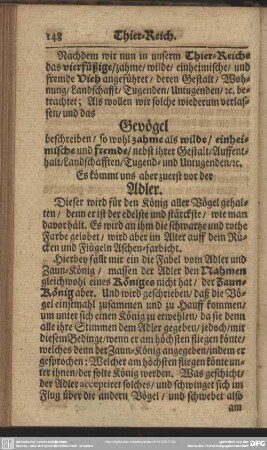 148 Thier-Reich.
Nachdem wir nun in unserm Thier-Reichs
das vierfüßige/zahme/wilde/einheimische/und
fremde Vieh angeführet/deren Gestalt/Woh-
nung/Landschafft/Tugenden/Untugenden/ꝛc. be-
trachtet; Als wollen wir solche wiederum verlas-
sen/und das
Gevögel
beschreiben/so wohl zahme als wilde/einhei-
mische und fremde/nebst ihrer Gestalt/Auffent-
halt/Landschafften/Tugend-und Untugenden/ꝛc.
Es kömmt uns aber zuerst vor der
Adler.
Dieser wird für den König aller Vögel gehal-
ten/denn er ist der edelste und stärckste/wie man
davor hält. Es wird an ihm die schwartze und rothe
Farbe gelobet/wird aber im Alter auff dem Rü-
cken und Flügeln Aschen-farbicht.
Hierbey fällt mir ein die Fabel vom Adler und
Zaun-König/massen der Adler den Nahmen
gleichwohl eines Königes nicht hat/der Zaun-
König aber. Und wird geschrieben/daß die Vö-
gel einsmahl zusammen und zu Hauff kommen/
um unter sich einen König zu erwehlen/da sie denn
alle ihre Stimmen dem Adler gegeben/jedoch/mit
diesem Bedinge/wenn er am höchsten fliegen könte/
welches denn der Zaun-König angegeben/indem er
gesprochen: Welcher am höchsten fliegen könte un-
ter ihnen/der solte König werden. Was geschicht/
der Adler acceptiret solches/und schwinget sich im
Flug über die andern Vögel/und schwebet also
am